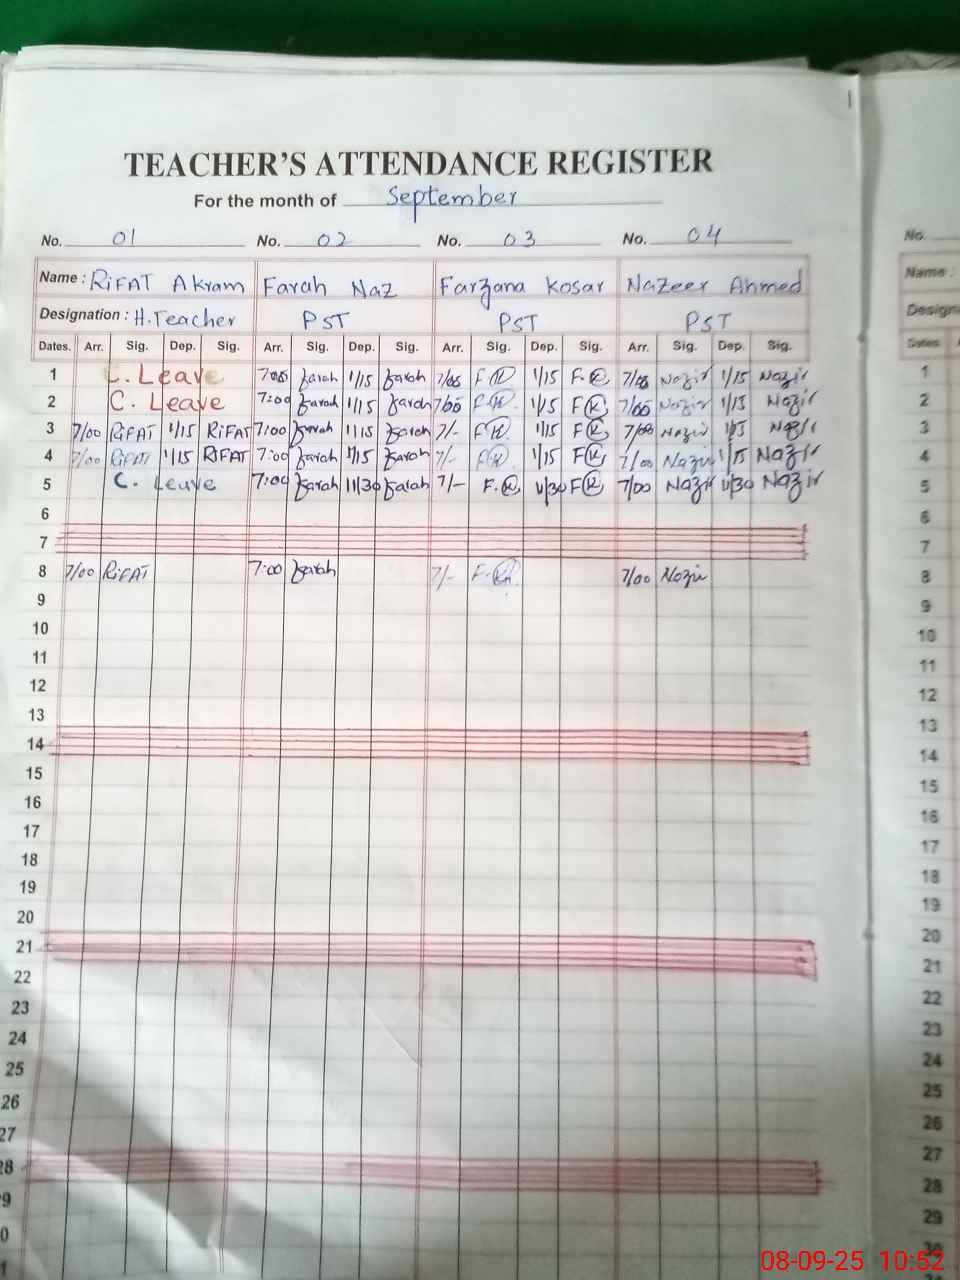 TEACHER'S ATTENDANCE REGISTER
For the month of September
No. 01 No. 02 No. 03 No. 04 No.
Name : RiFAT Akram Farah Naz Farzana Kosar Nazeer Ahmed Name :
Designation : H.Teacher PST PST PST Design
Dates. Arr. Sig. Dep. Sig. Arr. Sig. Dep. Sig. Arr. Sig. Dep. Sig. Arr. Sig. Dep. Sig. Dates
1 C. Leave 7:00 Farah 1/15 Farah 7/00 F K 1/15 F. K 7/00 Nazir 1/15 Nazir 1
2 C. Leave 7:00 Farah 1/15 Farah 7/00 F K 1/15 F K 7/00 Nazir 1/15 Nazir 2
3 7/00 RiFAT 1/15 RiFAT 7:00 Farah 1/15 Farah 7/- F K 1/15 F K 7/00 Nazir 1/15 Nazir 3
4 7/00 RiFAT 1/15 RiFAT 7:00 Farah 1/15 Farah 7/- F K 1/15 F K 7/00 Nazir 1/15 Nazir 4
5 C. Leave 7:00 Farah 11/30 Farah 7/- F. K 11/30 F K 7/00 Nazir 11/30 Nazir 5
6 6
7 7
8 7/00 RiFAT 7:00 Farah 7/- F. K 7/00 Nazir 8
9 9
10 10
11 11
12 12
13 13
14 14
15 15
16 16
17 17
18 18
19 19
20 20
21 21
22 22
23 23
24 24
25 25
26 26
27 27
28 28
9 29
0 30
1
08-09-25 10:52